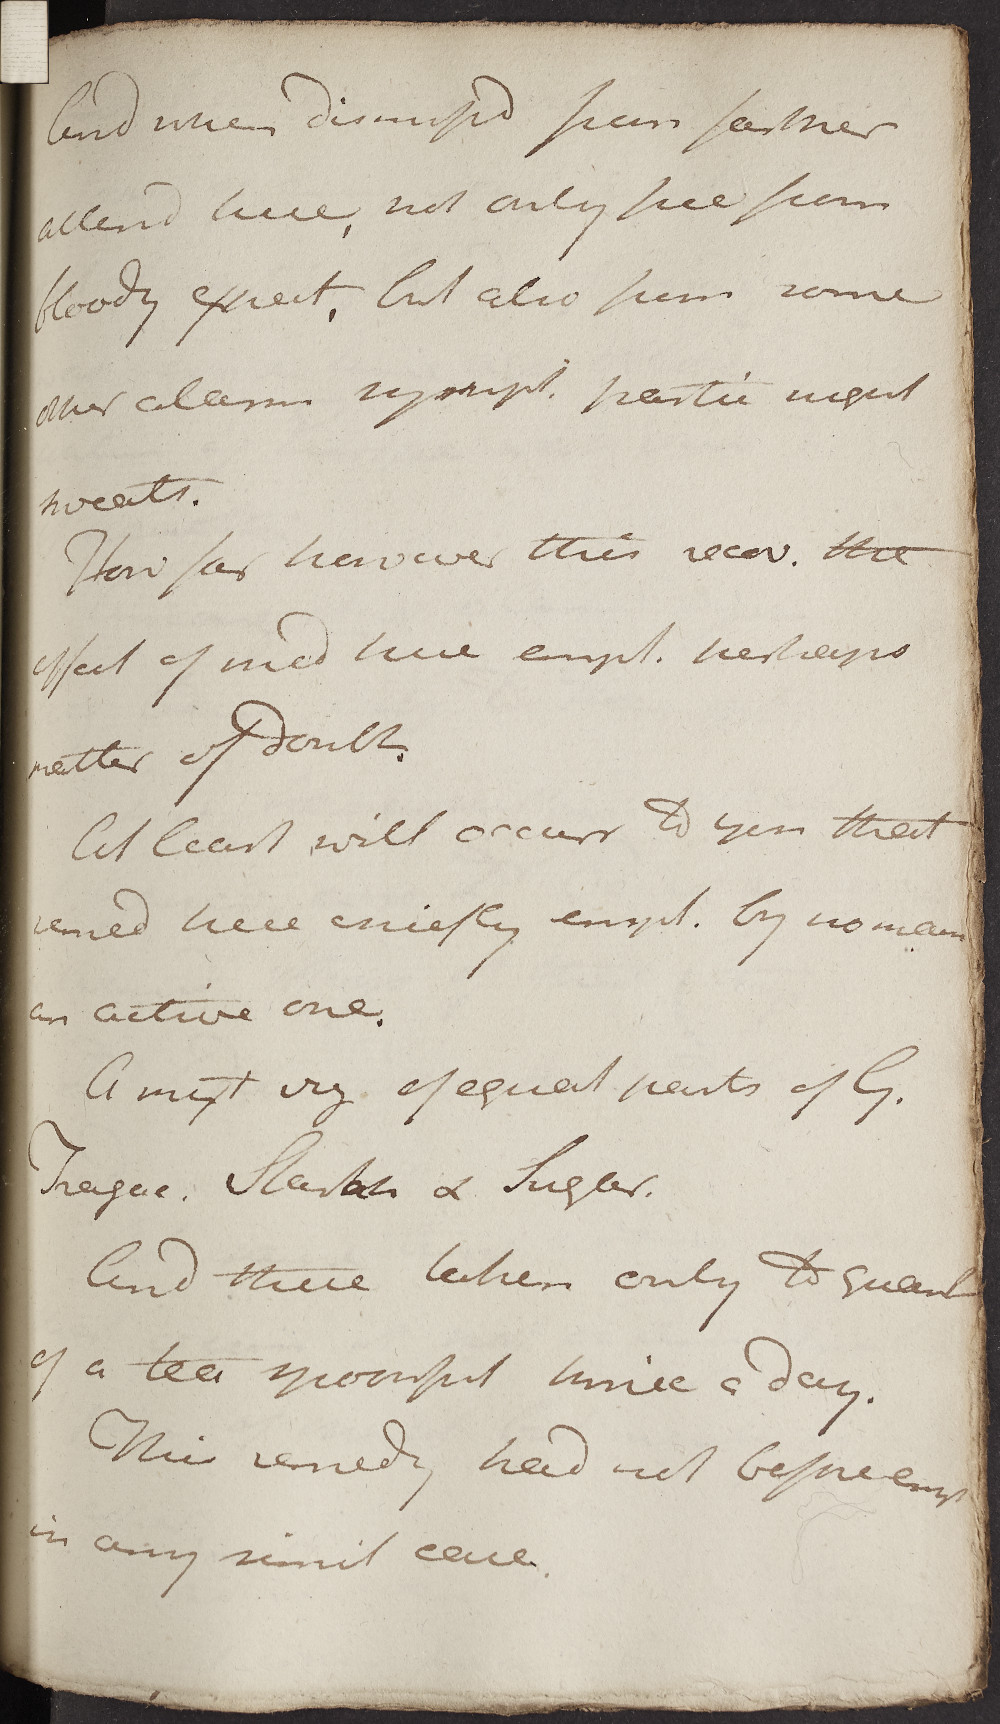 And when dismissd from farther
attend here, not only free from
bloody expect, but also from some
other alarm sympt. partic night
sweats.
How far however this recov. the
effect of med here empl. perhaps
matter of Doubt.
At least will occurr to you that
remed here chiefly empl. by no mean
an active one.
A mixt viz of equal parts of G.
Tragac. Starch & Sugar.
And these taken only to quant
of a tea spoonful thrice a day.
This remedy had not before empl
in any simil case.